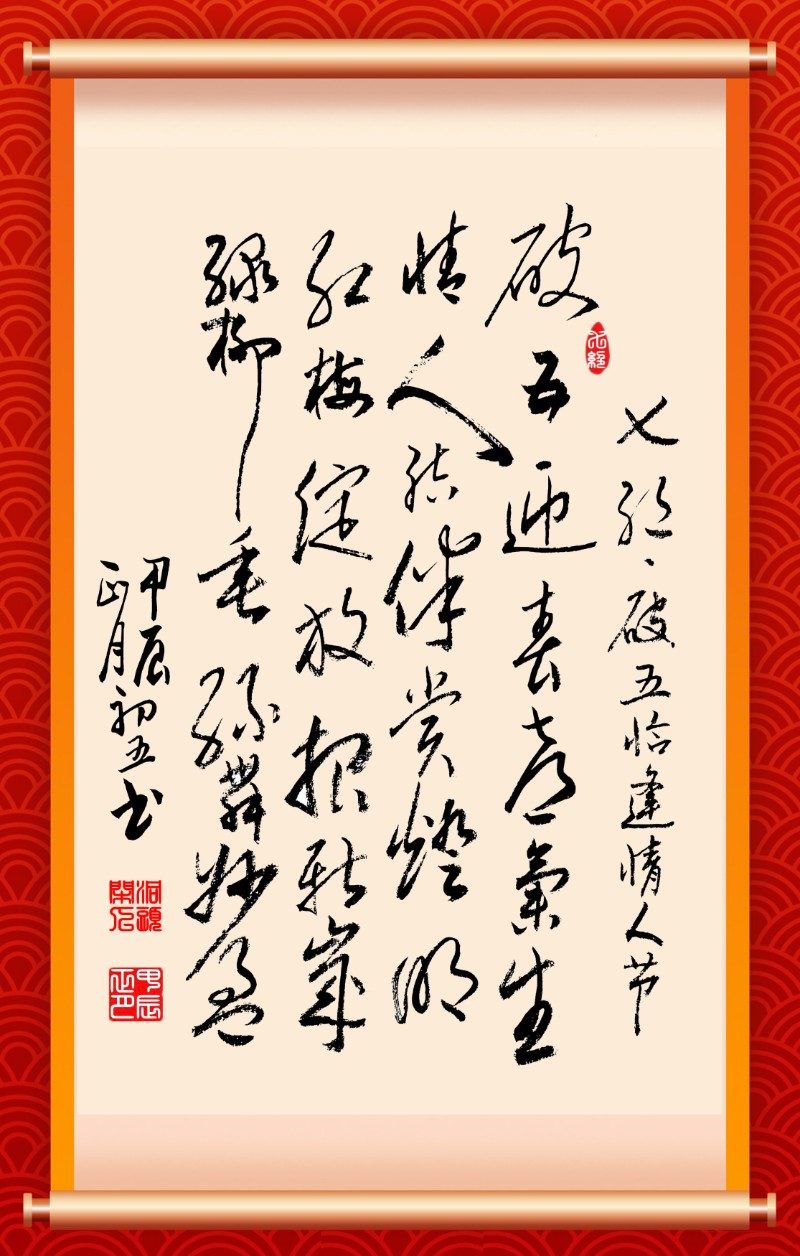 七绝、破五恰逢情人节
破五迎春喜氣生
情人结伴赏燈明
红梅绽放报新歲
绿柳垂舞妙盈
甲辰
正月初五书
甲辰